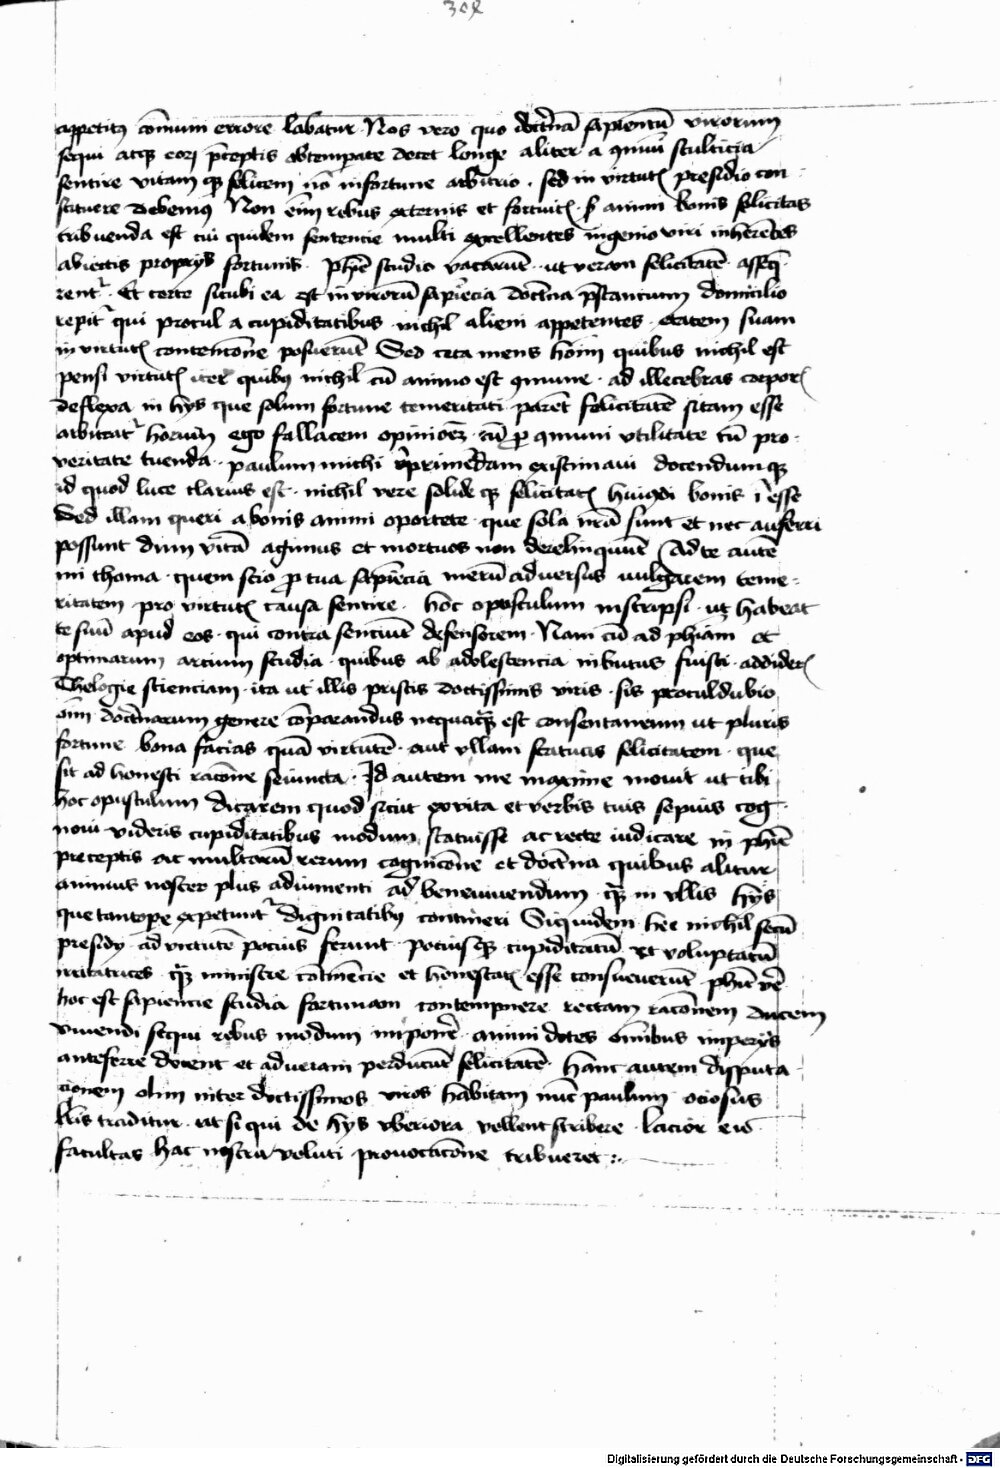 302
appetitꝯ cōmum errore labatur. Nos vero quo doct̄nā sapientū virorum
sequi atqꝫ eorꝫ p̄ceptis obtemprate docet longe aliter a ꝯmuni stulticia
sentire vitam qꝫ felicem nō in fortune arbitrio. sed in virtutꝭ presidio con
stituere debemꝯ Non em̄ rebus externis et fortuitꝭ. sꝫ animi bonis felicitas
tribuenda est cui quidem sentencie multi excellentes ingenio viri inherētes
abiectis propryꝭ fortunis. ph̄ie studio vacarūt. ut veram felicitatē asseq̄
rent᷑. Et certe sicubi ea est in virorū sapīecia doct̄na p̄stantium domicilio
repit᷑ qui procul a cupiditatibus nichil alieni appetentes. etatem suam
in virtutꝭ contencōne posuerūt Sed ceta mens homī quibus nichil est
pensi virtutꝭ iter quibꝯ nichil cū animo est ꝯmune. ad illecebras corporꝭ
deflexa in hys que solum fortune temeritati parēt felicitatē sitam esse
arbitrat᷑ horum ego fallacem opinionē. cū ꝓ ꝯmuni utilitate tū pro
veritate tuenda. paulum michi rep̄rimēdam existimaui docendumqꝫ
id quod luce clarius est. nichil vere solide qꝫ felicitatꝭ huiꝯdi bonis īesse
Sed illam queri a bonis animi oportere. que sola nr̄a sunt et nec auferri
possunt dum vitā agimus et mortuos non derelinquūt Ad te autē
mi thoma. quem scio ꝓ tua sapīecia merū aduersus uulgarem teme
ritatem pro virtutꝭ causa sentire. hoc opusculum inscripsi. ut habeat
te suū apud eos. qui contra senciūt defensorem. Nam cū ad ph̄iam et
optimarum arcium studia. quibus ab adolescencia inbutus fuisti. addiderꝭ
Theologie scienciam. ita ut illis priscis doctissimis viris. sis proculdubio
om̄i doct̄narum genere cōparandus nequaqꝫ est consentaneum ut pluris
fortune bona facias quā virtutē. aut ullam statueris felicitatem. que
sit ad honesti racōne seiuncta. Id autem me maxime mouit ut tibi
hoc opusculum dicarem quod sicut ex vita et verbis tuis sepius cog
noui videris cupiditatibus modum statuisse ac recte iudicare in ph̄ie
preceptis ac multarū rerum cognicōne et doct̄na quibus alitur
animus noster plus adiumenti ad bene viuendum. qꝫ in ullis hys
que tantope expetunt᷑ dignitatibꝯ contineri Siquidem hec nichil secū
presidy ad virtutē pocius ferunt. pociusqꝫ cupiditatū et voluptatū
irritatrices qꝫ ministre cōtinēcie et honestatꝭ esse consueuerūt ph̄ie vē
hoc est sapiencie studia fortunam contempnere rectam racōnem ducem
viuendi sequi rebus modum imponē. animi dotes om̄ibus imperys
anteferre docent et ad ueram perducūt felicitatē. hanc autem disputa
cionem olim inter doctissimos viros habitam nūc paulum ociosus
llis traditur. ut si qui de hys uberiora vellent scribere. lacior eis
facultas hac nostra veluti prouocacōne tribueret:.
Digitalisierung gefördert durch die Deutsche Forschungsgemeinschaft - DFG